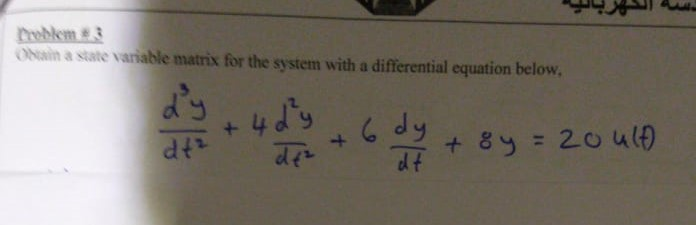 Problem # 3
Obtain a state variable matrix for the system with a differential equation below,
d³y/dt² + 4 d²y/dt² + 6 dy/dt + 8y = 20 u(t)